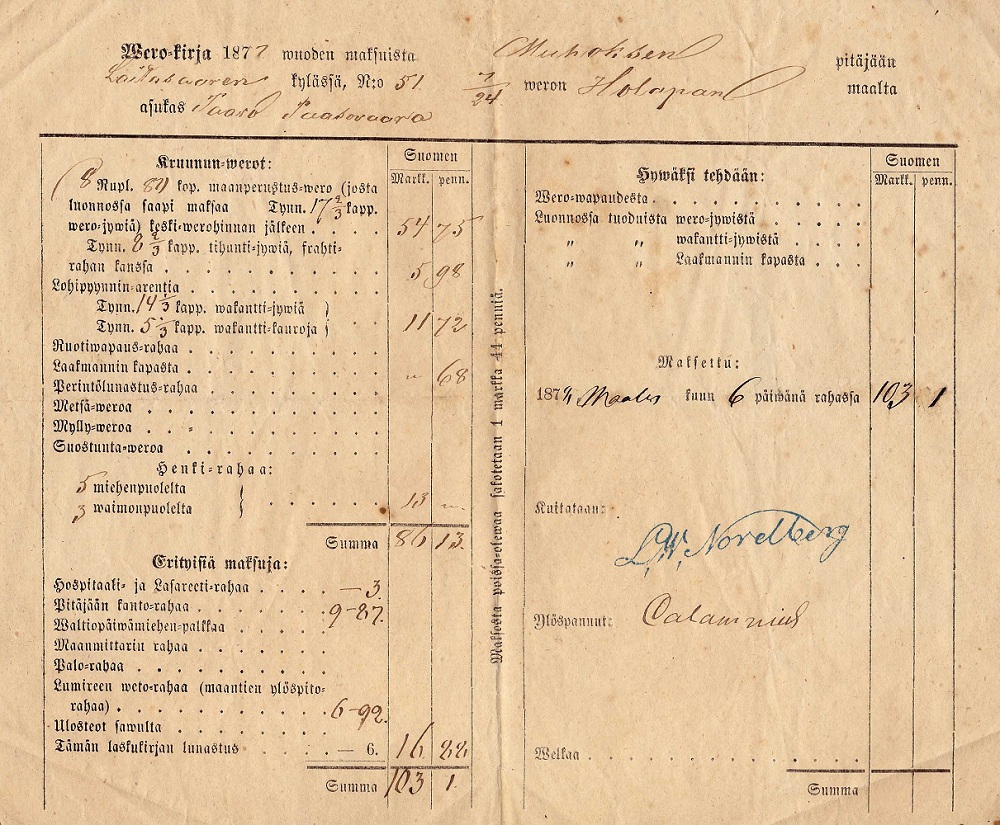 Wero-kirja 1877 wuoden maksuista Muhoksen pitäjään
Laitasaaren kylässä, N:o 51. 7/24 weron Holapan maalta
asukas Paavo Paasovaara
Kruunun-werot:
Suomen
Markk. penn.
(8 Rupl. 84 kop. maanperustus-wero (josta
luonnossa saapi maksaa Tynn. 17 2/3 kapp.
wero-jywiä) keski-werohinnan jälkeen . . . . . 54 75
Tynn. 8 2/3 kapp. tihunti-jywiä, frahti-
rahan kanssa . . . . . . . . . 5 98
Lohipyynnin-arentia
Tynn. 14 1/3 kapp. wakantti-jywiä )
Tynn. 5 1/3 kapp. wakantti-kauroja ) . . . 11 72
Ruotiwapaus-rahaa . . . . . . . .
Laakmannin kapasta . . . . . . . . „ 68
Perintölunastus-rahaa . . . . . . .
Metsä-weroa . . . . . . . . . .
Mylly-weroa . . . . . . . . . .
Suostunta-weroa . . . . . . . . .
Henki-rahaa:
5 miehenpuolelta
3 waimonpuolelta } . . . . . . 13 „
Summa 86 13.
Erityisiä maksuja:
Hospitaali- ja Lasareeti-rahaa . . . . — 3.
Pitäjään kanto-rahaa . . . . . . 9-87.
Waltiopäiwämiehen-palkkaa . . . . .
Maanmittarin rahaa . . . . . . .
Palo-rahaa . . . . . . . . . .
Lumireen weto-rahaa (maantien ylöspito-
rahaa) . . . . . . . . . . 6-92.
Ulosteot sawulta . . . . . . . .
Tämän laskukirjan lunastus . . . . — 6. 16 88
Summa 103 1.
Maksosta poissa-olewaa sakotetaan 1 markka 44 penniä.
Hywäksi tehdään:
Suomen
Markk. penn.
Wero-wapaudesta . . . . . . . . . .
Luonnossa tuoduista wero-jywistä . . . . .
„ „ wakantti-jywistä . . . .
„ „ Laakmannin kapasta . . .
Maksettu:
187 Maalis kuun 6 päiwänä rahassa 103 1
Kuitataan:
L. W. Nordberg
Ylöspannut: Calamnius
Welkaa . . . . . . . . . . . . .
Summa